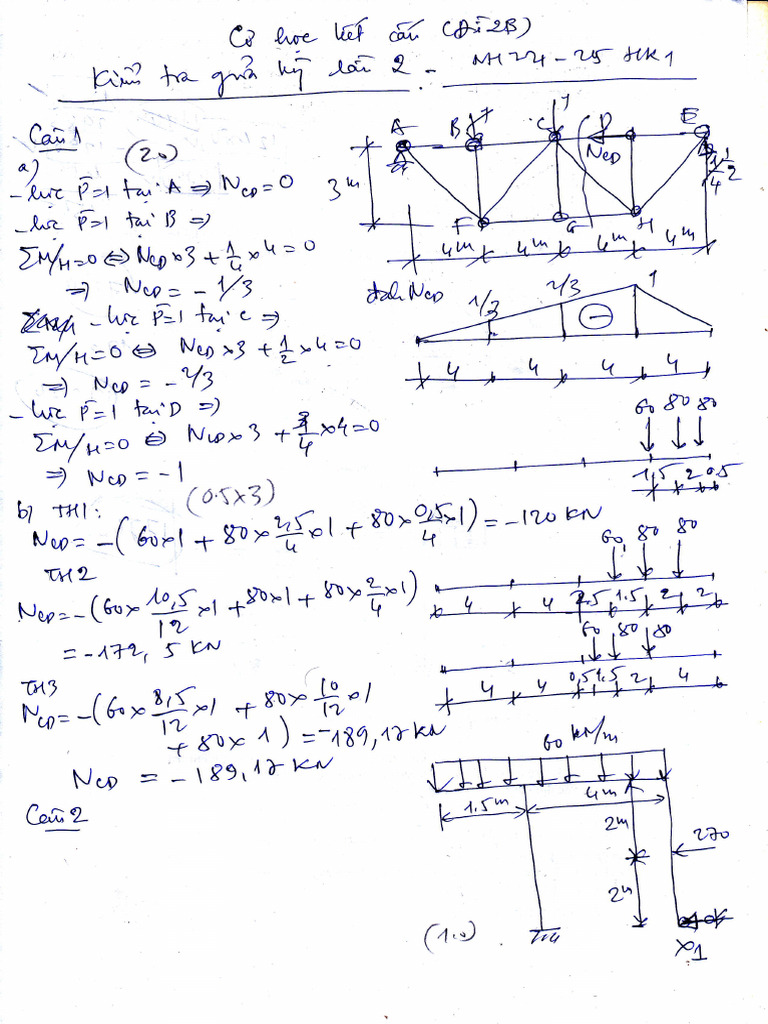 Cơ học kết cấu (Đề 2B)
Kiểm tra giữa kỳ lần 2 - NH 24-25 HK1
Câu 1
(2.0)
a)
- lực P̄=1 tại A ⇒ NCD=0
- lực P̄=1 tại B ⇒
ΣM/H=0 ⇔ NCD×3 + 1/4×4=0
⇒ NCD = -1/3
- lực P̄=1 tại C ⇒
ΣM/H=0 ⇔ NCD×3 + 1/2×4=0
⇒ NCD = -2/3
- lực P̄=1 tại D ⇒
ΣM/H=0 ⇔ NCD×3 + 3/4×4=0
⇒ NCD = -1
A B C D E
NCD
3m
F G H
4m 4m 4m 4m
đah NCD
1/3 2/3 1
4 4 4 4
60 80 80
1,5 2 0.5
(0.5×3)
b) TH1:
NCD = -(60×1 + 80×2,5/4×1 + 80×0,5/4×1) = -120 KN
TH2
NCD = -(60×10,5/12×1 + 80×1 + 80×2/4×1)
= -172,5 KN
60 80 80
4 4 2.5 1.5 2 2
TH3
NCD = -(60×8,5/12×1 + 80×10/12×1
+ 80×1) = -189,17 KN
NCD = -189,17 KN
60 80 80
4 4 0,5 1.5 2 4
Câu 2
60 KN/m
1.5m 4m
2m
270
2m
(1.0)
X1